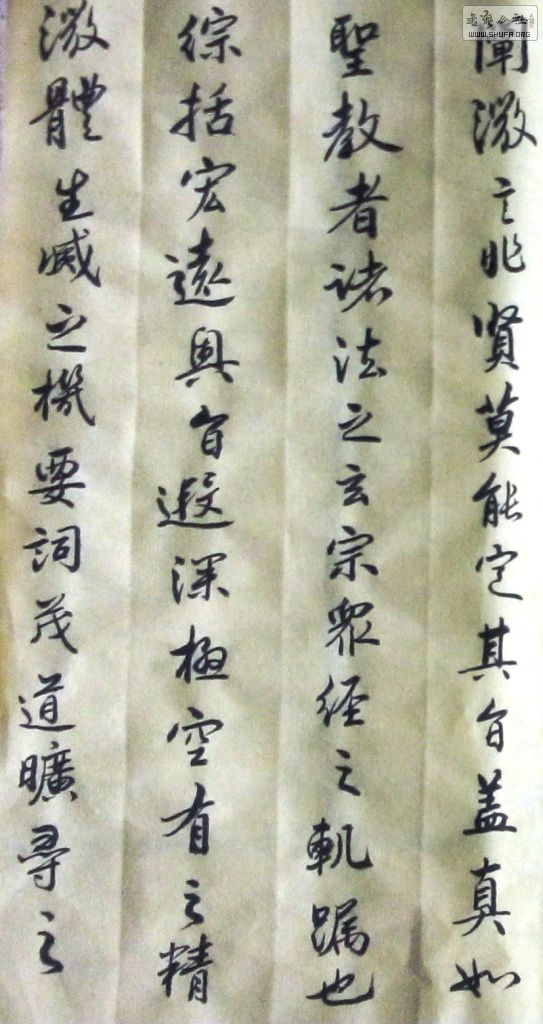 闡微言非賢莫能定其旨盖真如
聖教者諸法之玄宗眾經之軌躅也
综括宏遠奥旨遐深極空有之精
微體生滅之機要詞茂道曠尋之
WWW.SHUFA.ORG